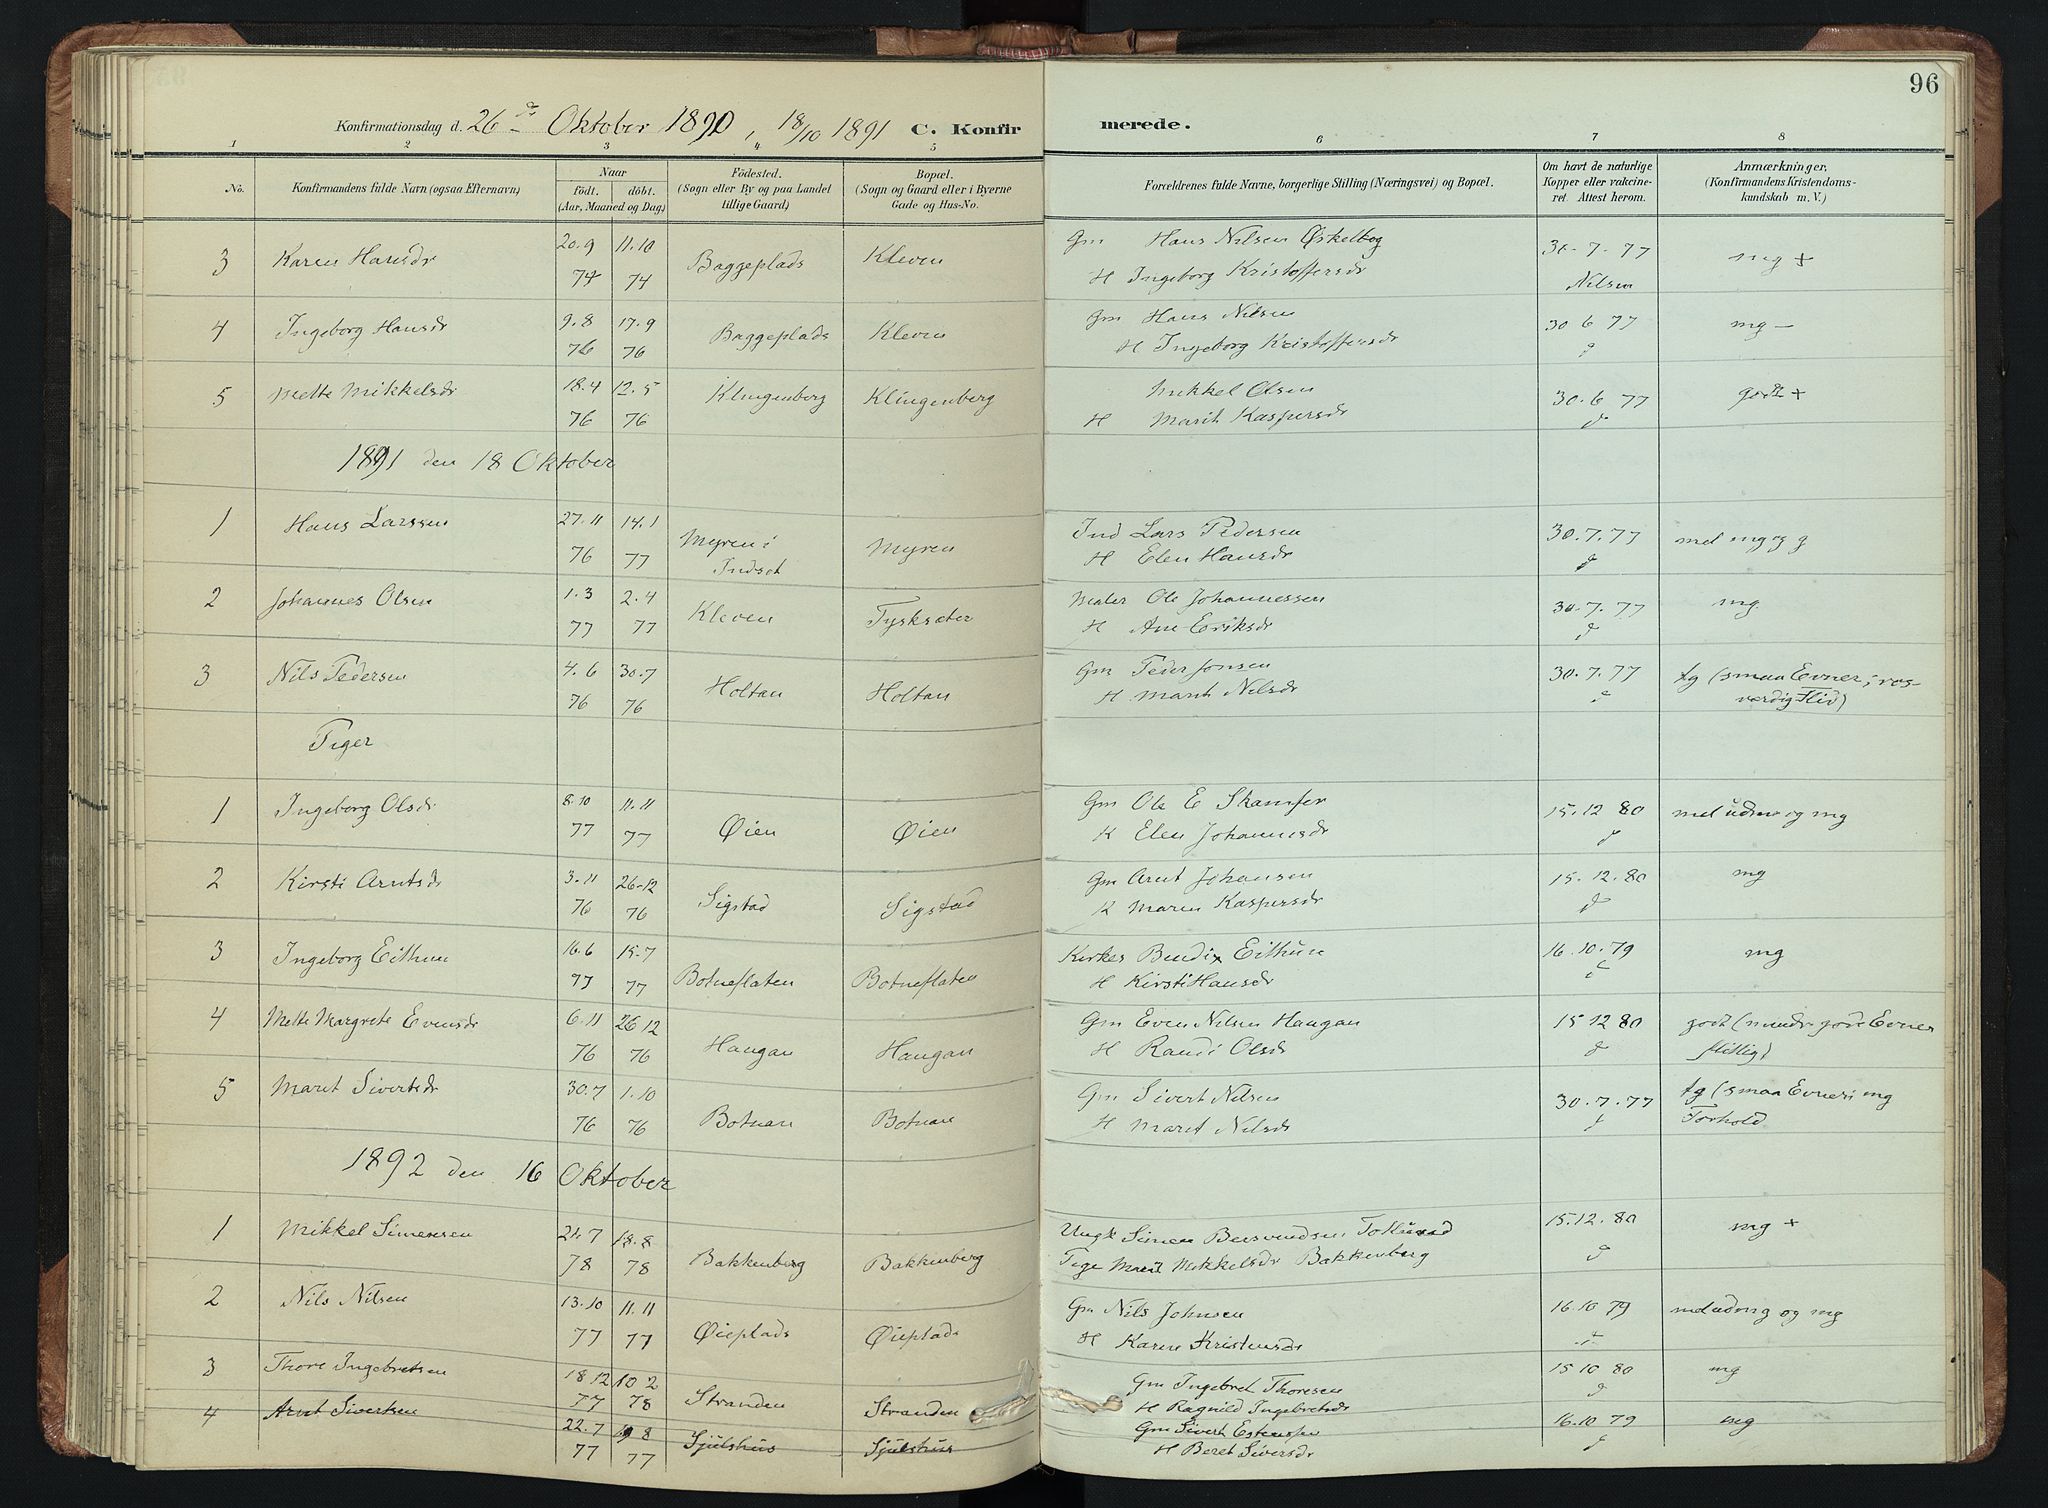 96
Konfirmationsdag d. 26de Oktober 1890, 18/10 1891 C. Konfirmerede.
1 2 3 4 5 6 7 8
No. Konfirmandens fulde Navn (ogsaa Efternavn) Naar født. døbt. (Aar, Maaned og Dag) Fødested. (Sogn eller By og paa Landet tillige Gaard) Bopæl. (Sogn og Gaard eller i Byerne Gade og Hus-No. Forældrenes fulde Navne, borgerlige Stilling (Næringsvei) og Bopæl. Om havt de naturlige Kopper eller vakcineret. Attest herom. Anmærkninger, (Konfirmandens Kristendomskundskab m. V.)
3 Karen Hansdr 20.9 11.10 Baggeplads Kleven Gm Hans Nilsen Øskelbog 30-7-77 mg +
74 74 H Ingeborg Kristoffersdr Nilsen
4 Ingeborg Hansdr 9.8 17.9 Baggeplads Kleven Gm Hans Nilsen 30 6 77 mg —
76 76 H Ingeborg Kristoffersdr
5 Mette Mikkelsdr 18.4 12.5 Klingenberg Klingenberg Mikkel Olsen 30.6 77 godt +
76 76 H Marit Kaspersdr
1891 den 18 Oktober
1 Hans Larssen 27.11 14.1 Myren i Indset Myren Ind Lars Pedersen 30.7.77 mel mg og g
76 77 H Elen Hansdr
2 Johannes Olsen 1.3 2.4 Kleven Tysksæter Maler Ole Johannessen 30.7.77 mg
77 77 H Ane Eriksdr
3 Nils Pedersen 4.6 30.7 Holtan Holtan Gm Peder Jonsen 30.7.77 tg (smaa Evner; rosværdig Flid)
76 76 H Marit Nilsdr
Piger
1 Ingeborg Olsdr 8.10 11.11 Øien Øien Gm Ole E Skamfer 15.12 80 mel udm og mg
77 77 K Elen Johannesdr
2 Kirsti Arntsdr 3.11 26-12 Sigstad Sigstad Gm Arnt Johansen 15.12.80 mg
76 76 K Maren Kaspersdr
3 Ingeborg Eithun 16.6 15.7 Botneflaten Botneflaten Kirkes Bendix Eithun 16.10.79 mg
77 77 H Kirsti Hansdr
4 Mette Margrete Evensdr 6.11 26 12 Haugan Haugan Gm Even Nilsen Haugan 15 12 80 godt (mindre gode Evner flittig)
76 76 H Randi Olsdr
5 Marit Sivertsdr 30.7 1.10 Botnan Botnan Gm Sivert Nilsen 30.7.77 tg (smaa Evner; mg Forhold
76 76 H Marit Nilsdr
1892 den 16 Oktober
1 Mikkel Simensen 21.7 18.8 Bakkenberg Bakkenberg Ungk Simen Bersvendsen 15.12.80 mg +
78 78 Pige Marit Mikkelsdr Bakkenberg
2 Nils Nilsen 13.10 11.11 Øieplads Øieplads Gm Nils Johnsen 16.10 79 mel udm g og mg
77 77 H Karen Kristensdr
3 Thore Ingebretsen 18 12 10 2 Stranden Stranden Gm Ingebret Thoresen 15 10 80 mg
77 78 H Ragnild Ingebretsdr
4 Arnt Sivertsen 22.7 19 8 Sjulshus Sjulshus Gm Sivert Estensen 16.10 79 mg
77 77 H Beret Siversdr